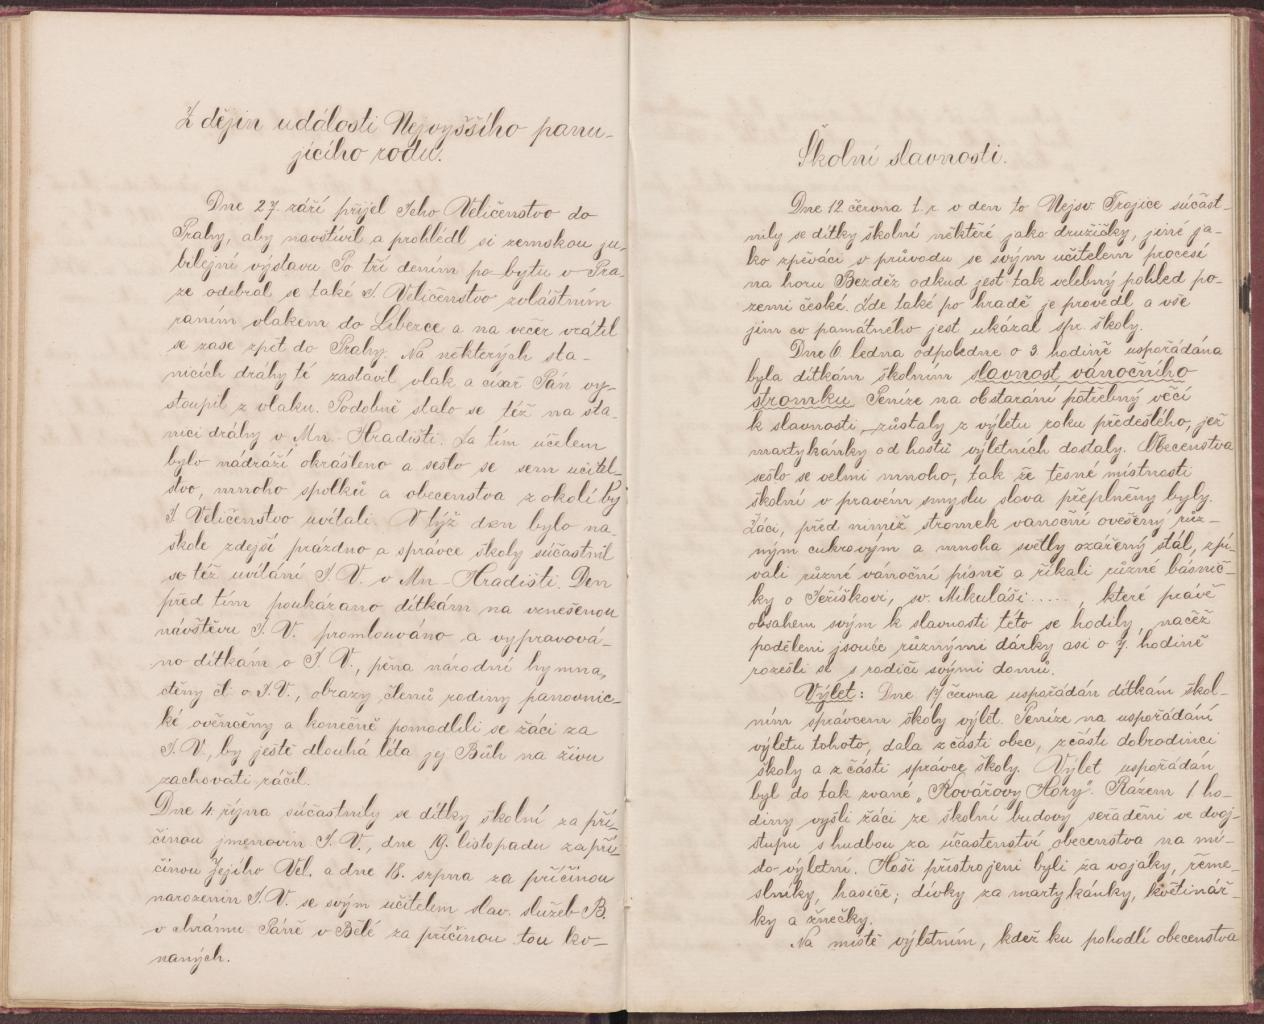 Z dějin události Nejvyššího panu-
jícího rodu.
Dne 27. září přijel Jeho Veličenstvo do
Prahy, aby navštívil a prohlédl si zemskou ju-
bilejní výstavu Po tří dením po bytu v Pra-
ze odebral se také J. Veličenstvo zvláštním
raním vlakem do Liberce a na večer vrátil
se zase zpět do Prahy. Na některých sta-
nicích dráhy té zastavil vlak a císař Pán vy-
stoupil z vlaku. Podobně stalo se též na sta-
nici dráhy v Mn. Hradišti. Za tím účelem
bylo nádraží okrášleno a sešlo se sem učitel-
stvo, mnoho spolků a obecenstva z okolí by
J. Veličenstvo uvítali. V týž den bylo na
škole zdejší prázdno a správce školy súčastnil
se též uvítání J. V. v Mn-Hradišti. Den
před tím poukázano dítkám na vznešenou
návštěvu J. V. promlouváno a vypravová-
no dítkám o J. V., pěna národní hymna,
čteny čl. o J. V., obrazy členů rodiny panovnic-
ké ověnčeny a konečně pomodlili se žáci za
J. V., by ještě dlouhá léta jej Bůh na živu
zachovati ráčil.
Dne 4. října súčastnily se dítky školní za pří-
činou jmenovin J. V., dne 19. listopadu za pří-
činou Jejího Vel. a dne 18. srpna za příčinou
narozenin J. V. se svým učitelem slav. služeb B.
v chrámu Páně v Bělé za příčinou tou ko-
naných.
Školní slavnosti.
Dne 12. června t. r. v den to Nejsv. Trojice súčast-
nily se dítky školní některé jako družičky, jiné ja-
ko zpěváci v průvodu se svým učitelem procesí
na horu Bezděz odkud jest tak velebný pohled po
zemi české. Zde také po hradě je provedl a vše
jim co památného jest ukázal spr. školy.
Dne 6. ledna odpoledne o 3. hodině uspořádána
byla dítkám školním slavnost vánočního
stromku. Peníze na obstarání potřebný věcí
k slavnosti zůstaly z výletu roku předešlého, jež
martykánky od hostů výletních dostaly. Obecenstva
sešlo se velmi mnoho, tak že těsné místnosti
školní v pravém smyslu slova přeplněny byly.
Žáci, před nimiž stromek vanoční ověšený růz-
ným cukrovým a mnoha světly ozářený stál, zpí-
vali různé vánoční písně a říkali různé básnič-
ky o Ježíškovi, sv. Mikuláši....., které právě
obsahem svým k slavnosti této se hodily, načež
poděleni jsouce různými dárky asi o 7. hodině
rozešli se s rodiči svými domů.
Výlet: Dne 17 června uspořádán dítkám škol-
ním správcem školy výlet. Peníze na uspořádání
výletu tohoto, dala z části obec, z části dobrodinci
školy a z části správce školy. Výlet uspořádán
byl do tak zvané „Kovářovy Hory". Rázem 1 ho-
diny vyšli žáci ze školní budovy seřaděni ve dvoj-
stupu s hudbou za účastenství obecenstva na mí-
sto výletní. Hoši přistrojeni byli za vojáky, řeme-
slníky, hasiče; dívky za martykánky, květinář-
ky a žnečky.
Na místě výletním, kdež ku pohodlí obecenstva